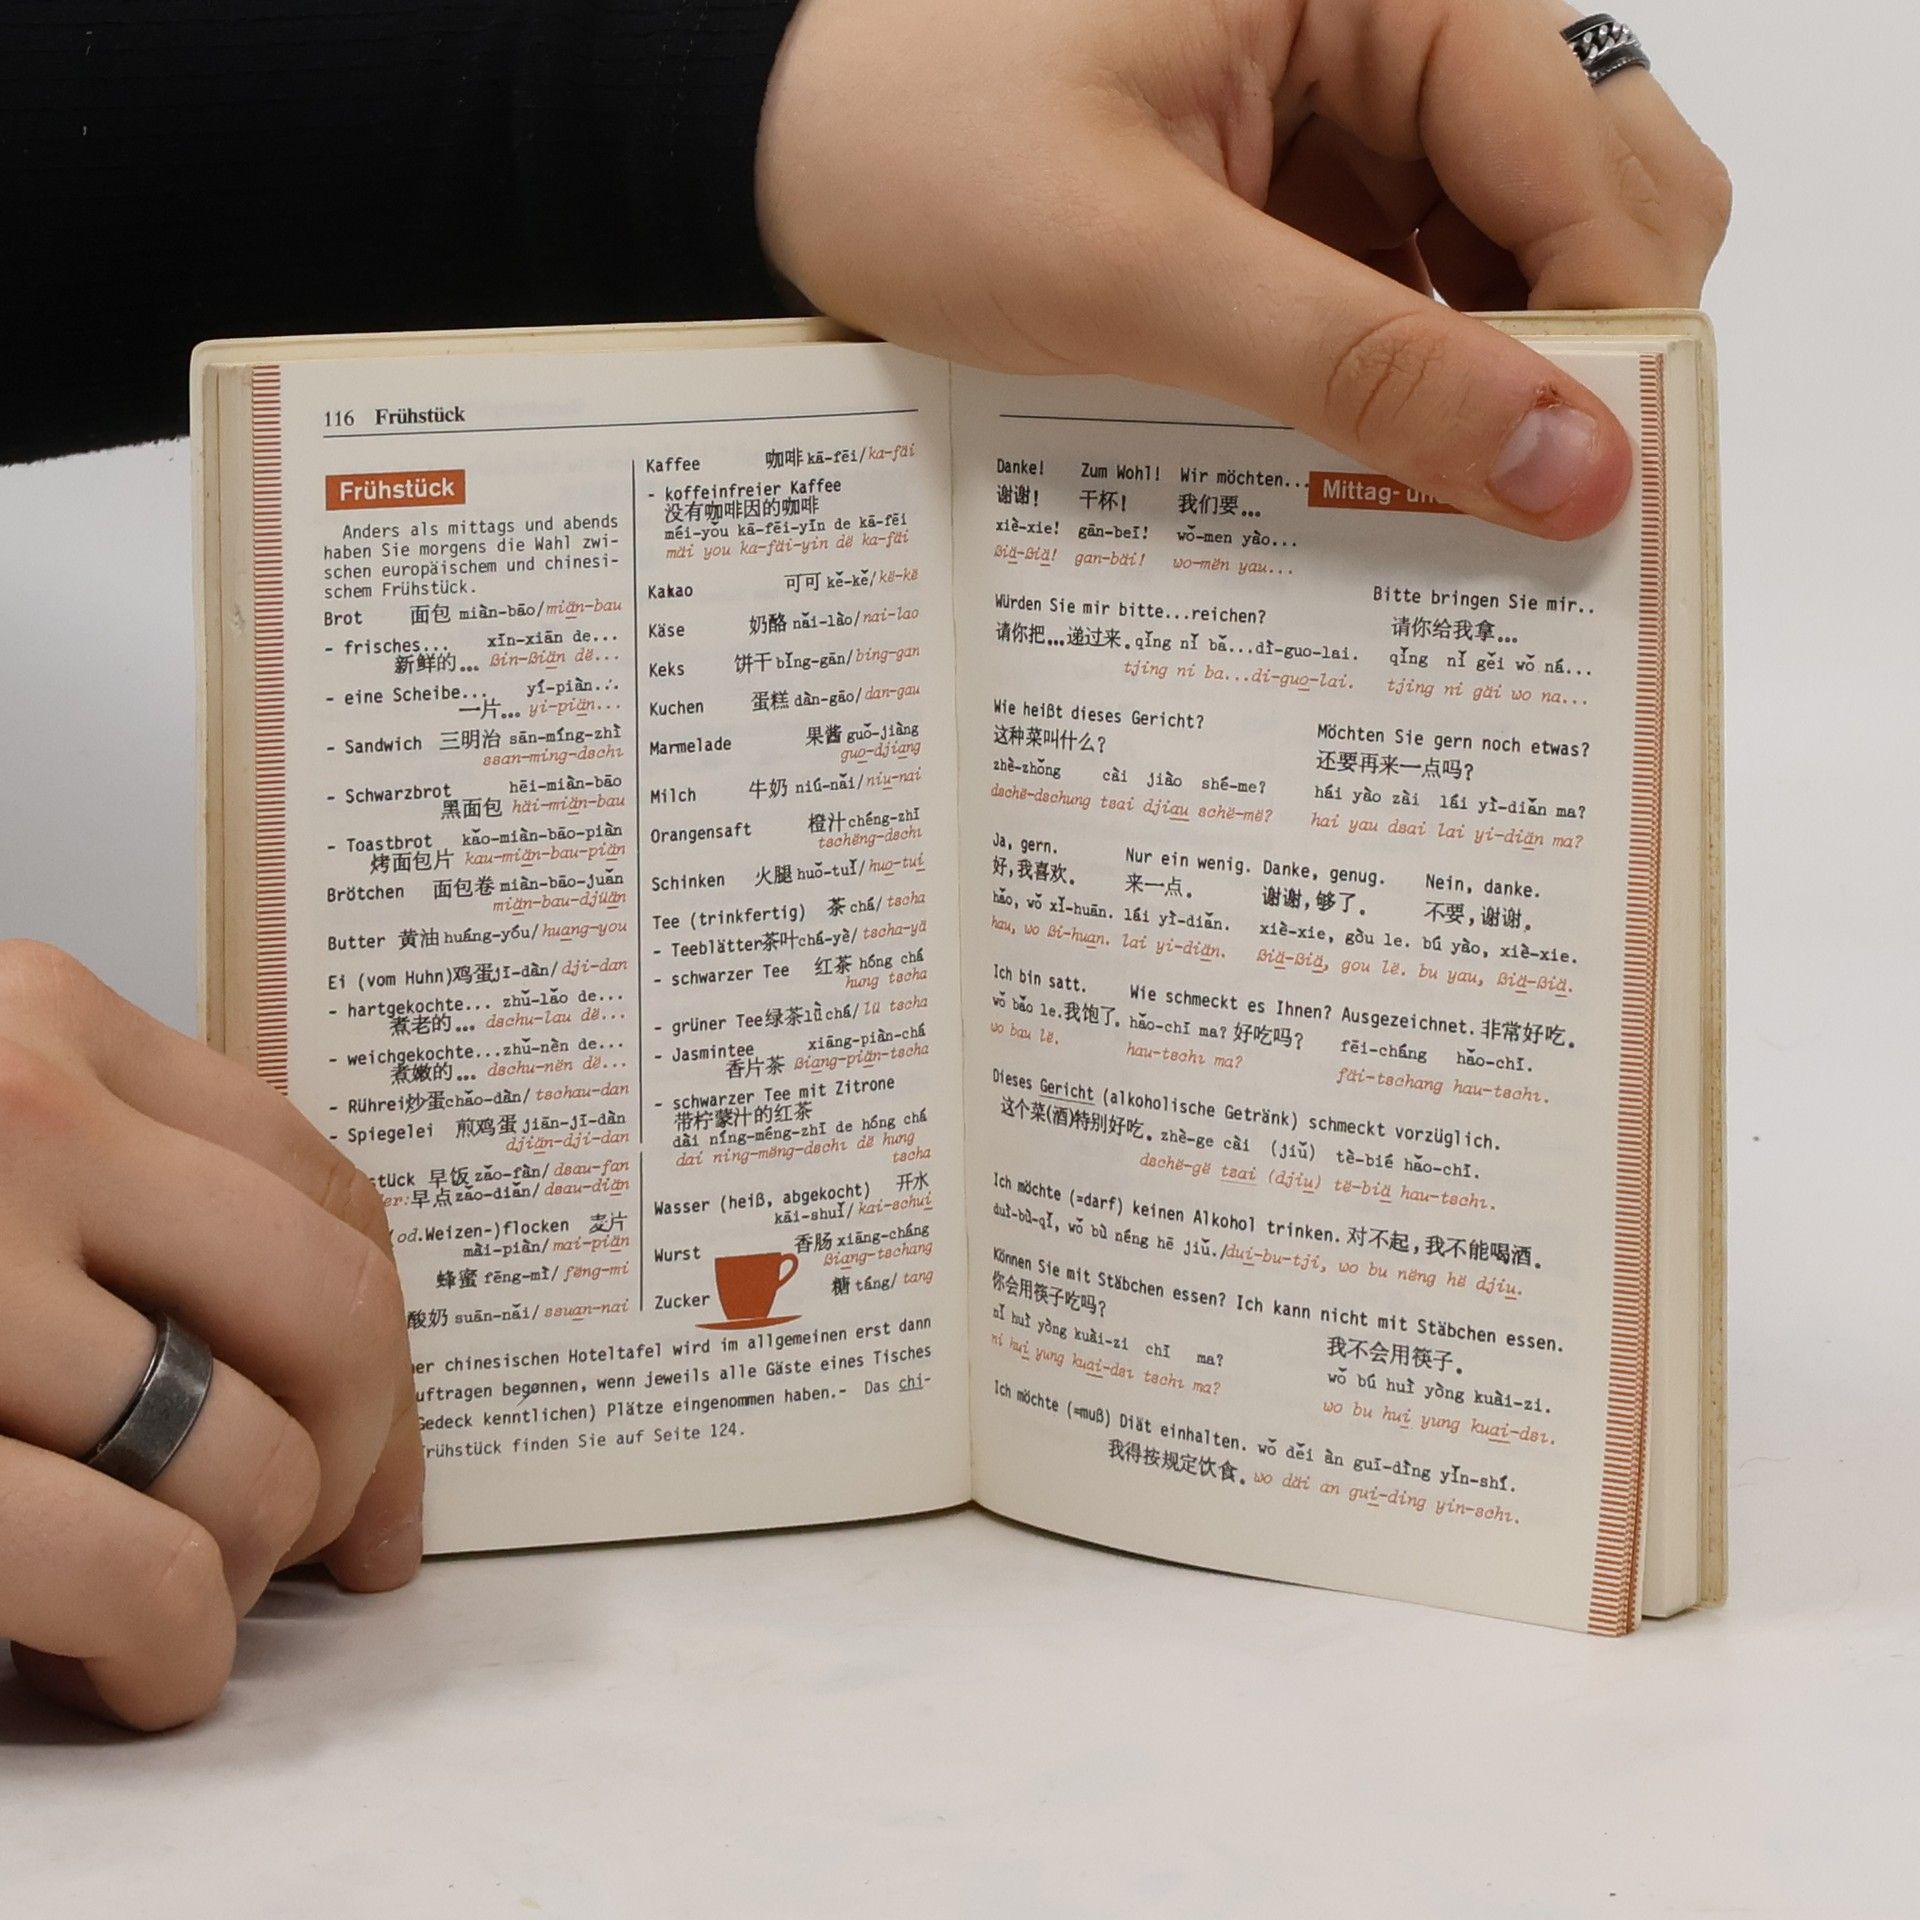 116 Frühstück
Frühstück
Anders als mittags und abends
haben Sie morgens die Wahl zwi-
schen europäischem und chinesi-
schem Frühstück.
Brot 面包 miàn-bāo/miän-bau
- frisches... xīn-xiān de...
新鲜的... ßin-ßiän dë...
- eine Scheibe... yí-piàn...
一片... yi-piän...
- Sandwich 三明治 sān-míng-zhì
ssan-ming-dschı
- Schwarzbrot hēi-miàn-bāo
黑面包 häi-miän-bau
- Toastbrot kǎo-miàn-bāo-piàn
烤面包片 kau-miän-bau-piän
Brötchen 面包卷 miàn-bāo-juǎn
miän-bau-djüän
Butter 黄油 huáng-yóu/huang-you
Ei (vom Huhn)鸡蛋jī-dàn/dji-dan
- hartgekochte... zhǔ-lǎo de...
煮老的... dschu-lau dë...
- weichgekochte...zhǔ-nèn de...
煮嫩的... dschu-nën dë...
- Rührei炒蛋chǎo-dàn/tschau-dan
- Spiegelei 煎鸡蛋 jiān-jī-dàn
djiän-dji-dan
stück 早饭 zǎo-fàn/dsau-fan
er:早点 zǎo-diǎn/dsau-diän
(od.Weizen-)flocken 麦片
mài-piàn/mai-piän
蜂蜜 fēng-mì/fëng-mi
酸奶 suān-nǎi/ssuan-nai
Kaffee 咖啡 kā-fēi/ka-fäi
- koffeinfreier Kaffee
没有咖啡因的咖啡
méi-yǒu kā-fēi-yīn de kā-fēi
mäi you ka-fäi-yin dë ka-fäi
Kakao 可可 kě-kě/kë-kë
Käse 奶酪 nǎi-lào/nai-lao
Keks 饼干 bǐng-gān/bing-gan
Kuchen 蛋糕 dàn-gāo/dan-gau
Marmelade 果酱 guǒ-jiàng
guo-djiang
Milch 牛奶 niú-nǎi/niu-nai
Orangensaft 橙汁 chéng-zhī
tschëng-dschı
Schinken 火腿 huǒ-tuǐ/huo-tui
Tee (trinkfertig) 茶 chá/tscha
- Teeblätter茶叶chá-yè/tscha-yä
- schwarzer Tee 红茶 hóng chá
hung tscha
- grüner Tee绿茶lǜ chá/lü tscha
- Jasmintee xiāng-piàn-chá
香片茶 ßiang-piän-tscha
- schwarzer Tee mit Zitrone
带柠檬汁的红茶
dài níng-méng-zhī de hóng chá
dai ning-mëng-dschı dë hung
tscha
Wasser (heiß, abgekocht) 开水
kāi-shuǐ/kai-schui
Wurst 香肠 xiāng-cháng
ßiang-tschang
Zucker 糖 táng/tang
er chinesischen Hoteltafel wird im allgemeinen erst dann
uftragen begonnen, wenn jeweils alle Gäste eines Tisches
Gedeck kenntlichen) Plätze eingenommen haben.- Das chi-
rühstück finden Sie auf Seite 124.
Mittag- un
Danke! Zum Wohl! Wir möchten...
谢谢! 干杯! 我们要...
xiè-xie! gān-bēi! wǒ-men yào...
ßiä-ßiä! gan-bäi! wo-mën yau...
Bitte bringen Sie mir..
请你给我拿...
qǐng nǐ gěi wǒ ná...
tjing ni gäi wo na...
Würden Sie mir bitte...reichen?
请你把...递过来. qǐng nǐ bǎ...dì-guo-lai.
tjing ni ba...di-guo-lai.
Wie heißt dieses Gericht?
这种菜叫什么?
zhè-zhǒng cài jiào shé-me?
dschë-dschung tsai djiau schë-më?
Möchten Sie gern noch etwas?
还要再来一点吗?
hái yào zài lái yì-diǎn ma?
hai yau dsai lai yi-diän ma?
Ja, gern. Nur ein wenig. Danke, genug. Nein, danke.
好,我喜欢. 来一点. 谢谢,够了. 不要,谢谢.
hǎo, wǒ xǐ-huān. lái yì-diǎn. xiè-xie, gòu le. bú yào, xiè-xie.
hau, wo ßi-huan. lai yi-diän. ßiä-ßiä, gou lë. bu yau, ßiä-ßiä.
Ich bin satt. Wie schmeckt es Ihnen? Ausgezeichnet. 非常好吃.
wǒ bǎo le.我饱了. hǎo-chī ma? 好吃吗? fēi-cháng hǎo-chī.
wo bau lë. hau-tschı ma? fäi-tschang hau-tschı.
Dieses Gericht (alkoholische Getränk) schmeckt vorzüglich.
这个菜(酒)特别好吃. zhè-ge cài (jiǔ) tè-bié hǎo-chī.
dschë-gë tsai (djiu) të-biä hau-tschı.
Ich möchte (=darf) keinen Alkohol trinken. 对不起,我不能喝酒.
duì-bù-qǐ, wǒ bù néng hē jiǔ./dui-bu-tji, wo bu nëng hë djiu.
Können Sie mit Stäbchen essen? Ich kann nicht mit Stäbchen essen.
你会用筷子吃吗? 我不会用筷子.
nǐ huì yòng kuài-zi chī ma? wǒ bú huì yòng kuài-zi.
ni hui yung kuai-dsı tschı ma? wo bu hui yung kuai-dsı.
Ich möchte (=muß) Diät einhalten. wǒ děi àn guī-dìng yǐn-shí.
我得按规定饮食. wo däi an gui-ding yin-schı.